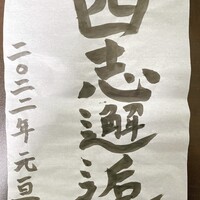 四志邂逅
二〇二二年 元旦